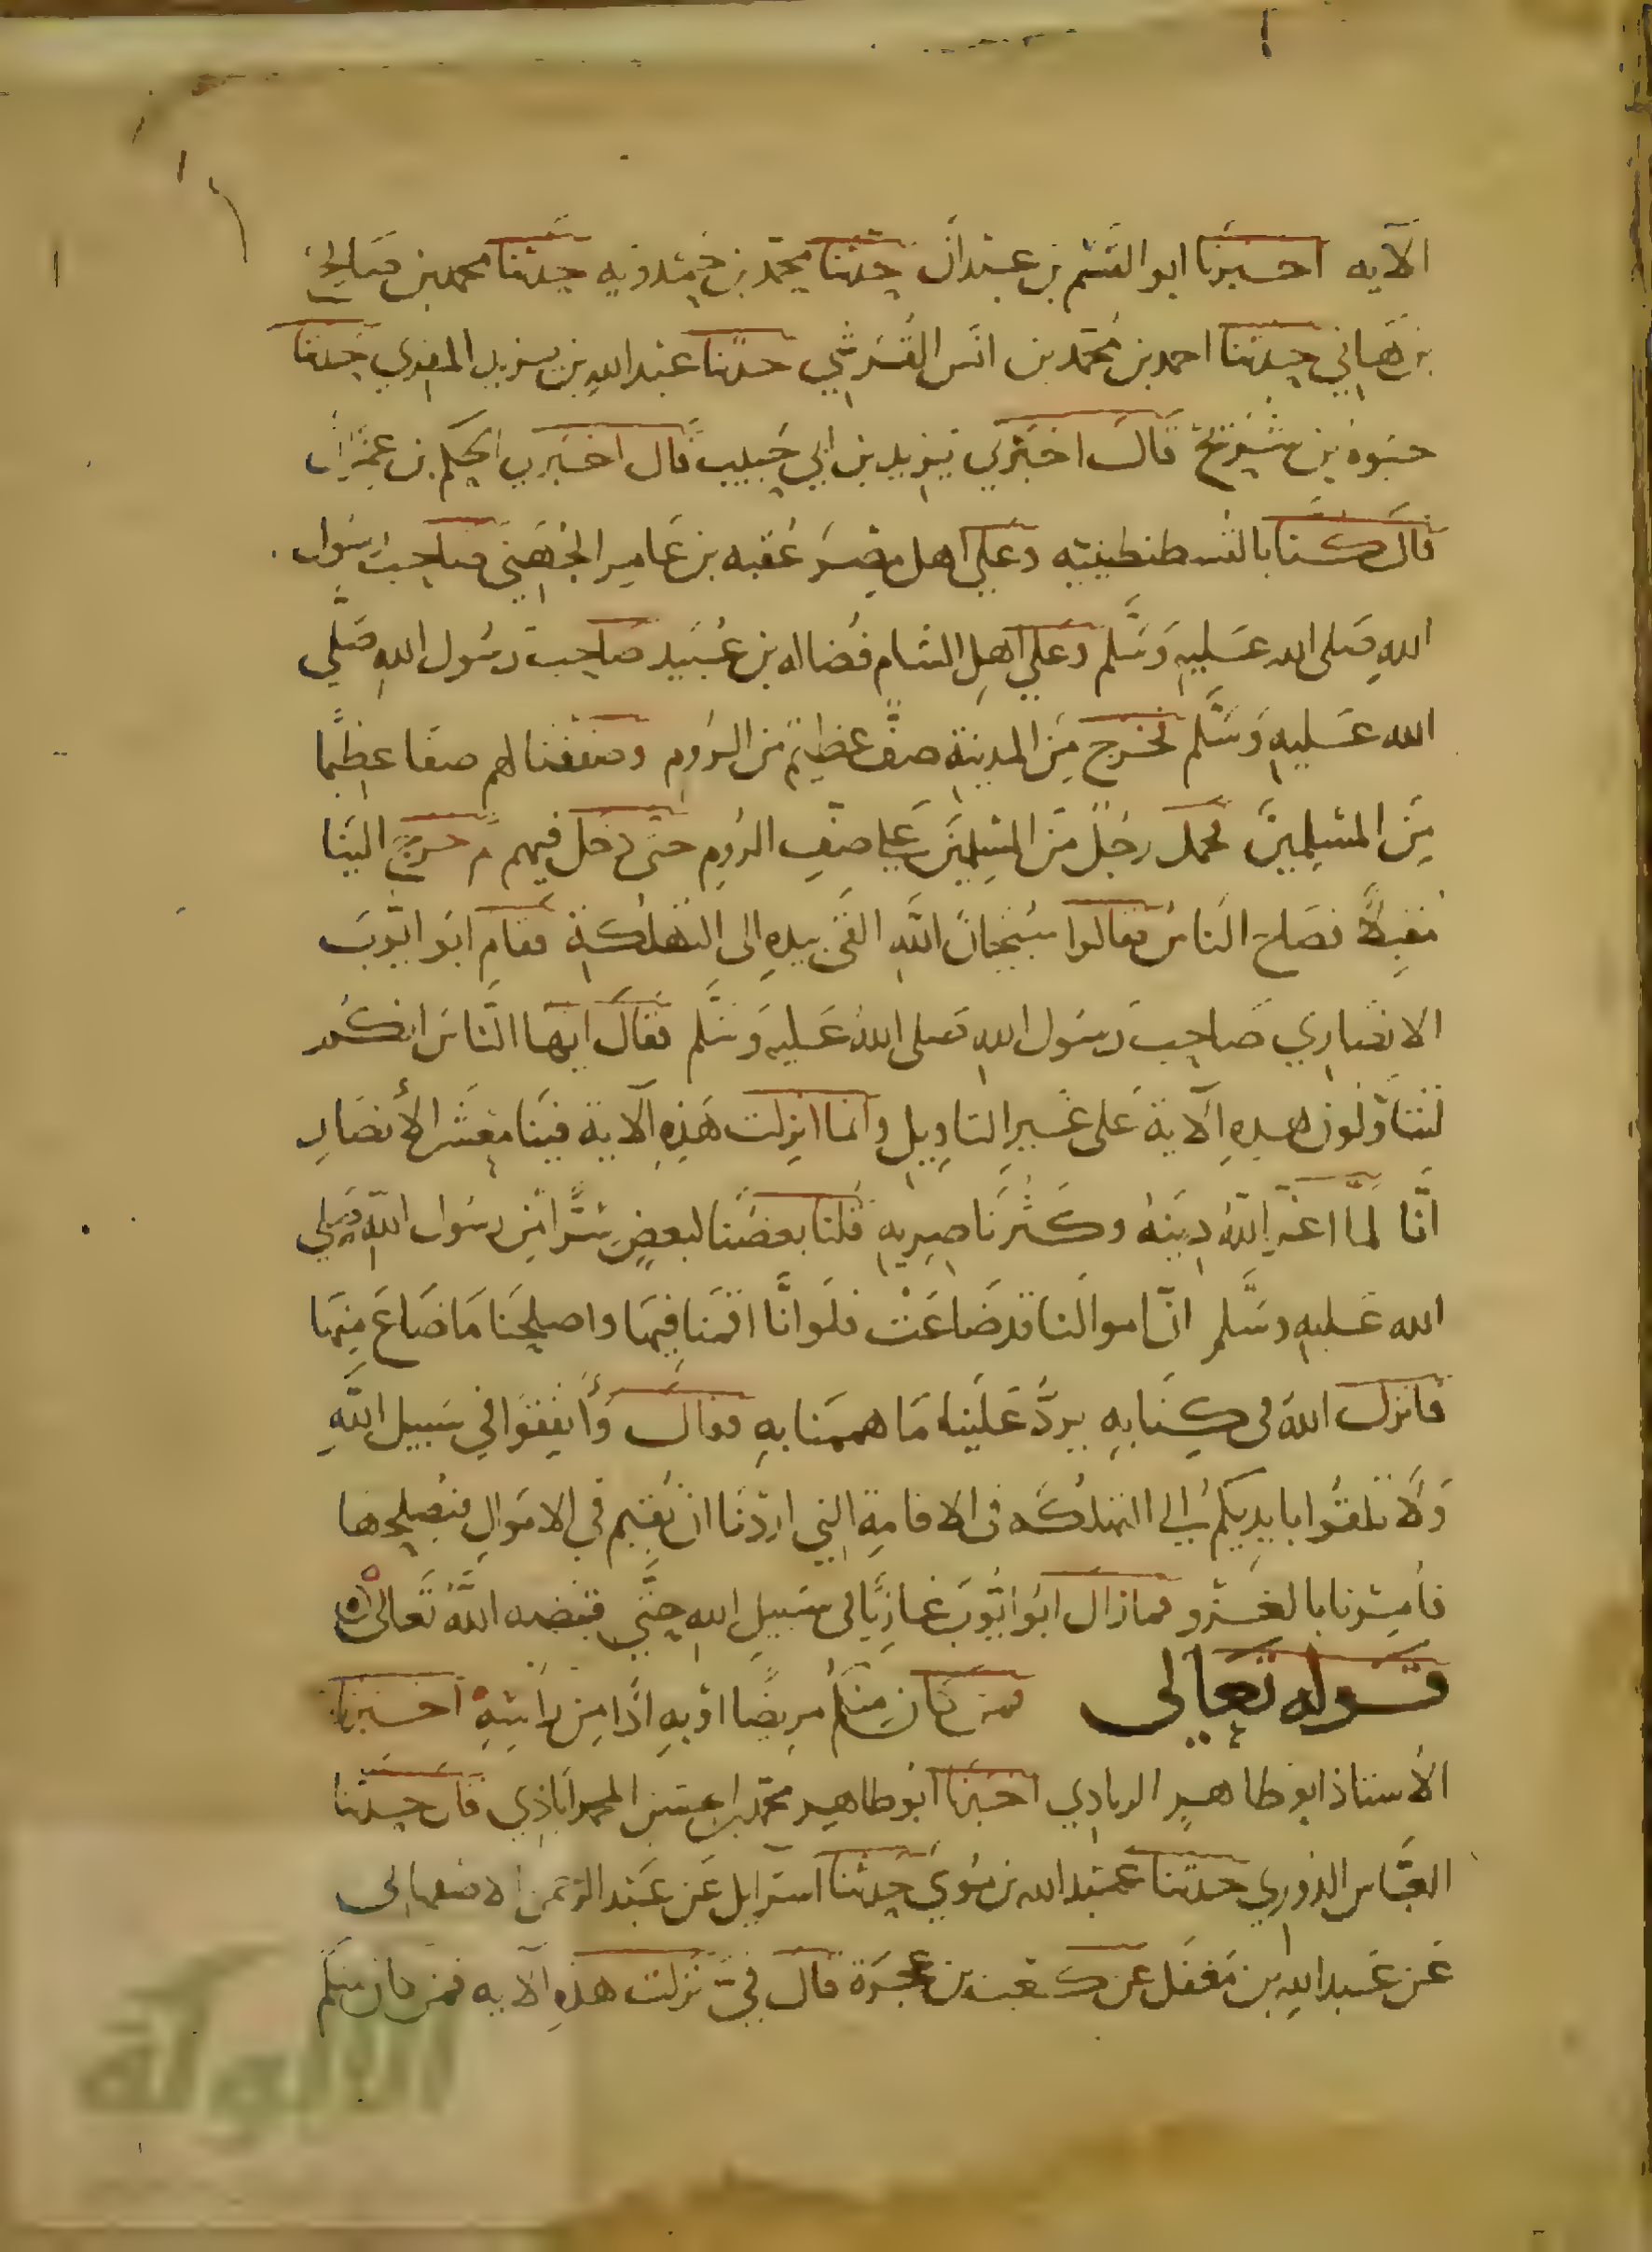 الآيه اخبرنا ابو القسم بن عبدان حدثنا محمد بن حمدويه حدثنا محمد بن صالح
بن هاني حدثنا احمد بن محمد بن انس القرشي حدثنا عبد الله بن يزيد المقري حدثنا
حيوة بن شريح قال اخبرني يزيد بن ابي حبيب قال اخبرني الحكم بن عمران
قال كنا بالقسطنطينيه وعلى اهل مصر عقبه بن عامر الجهني صاحب رسول
الله صلى الله عليه وسلم وعلى اهل الشام فضاله بن عبيد صاحب رسول الله صلى
الله عليه وسلم فخرج من المدينة صف عظيم من الروم وصففنا لهم صفا عظيما
من المسلمين فحمل رجل من المسلمين على صف الروم حتى دخل فيهم ثم خرج الينا
مقبلا فصاح الناس فقالوا سبحان الله القى بيده الى التهلكة فقام ابو ايوب
الانصاري صاحب رسول الله صلى الله عليه وسلم فقال ايها الناس انكم
لتتأولون هذه الآية على غير التاويل وانما انزلت هذه الآية فينا معشر الأنصار
انا لما اعز الله دينه وكثر ناصريه قلنا بعضنا لبعض سرا من رسول الله صلى
الله عليه وسلم ان اموالنا قد ضاعت فلو انا اقمنا فيها واصلحنا ما ضاع منها
فانزل الله في كتابه يرد علينا ما هممنا به فقال وأنفقوا في سبيل الله
ولا تلقوا بايديكم الى التهلكه في الاقامة التي اردنا ان نقيم في الاموال فنصلحها
فأمرنا بالغزو فما زال ابو ايوب غازيا في سبيل الله حتى قبضه الله تعالى
قوله تعالى فمن كان منكم مريضا او به اذا من رأسه اخبرنا
الأستاذ ابو طاهر الزيادي اخبرنا ابو طاهر محمد بن الحسن المحمداباذي قال حدثنا
العباس الدوري حدثنا عبيد الله بن موسى حدثنا اسرايل عن عبد الرحمن الاصبهاني
عن عبد الله بن مغفل عن كعب بن عجرة قال فيّ نزلت هذه الآيه فمن كان منكم
الألوكة